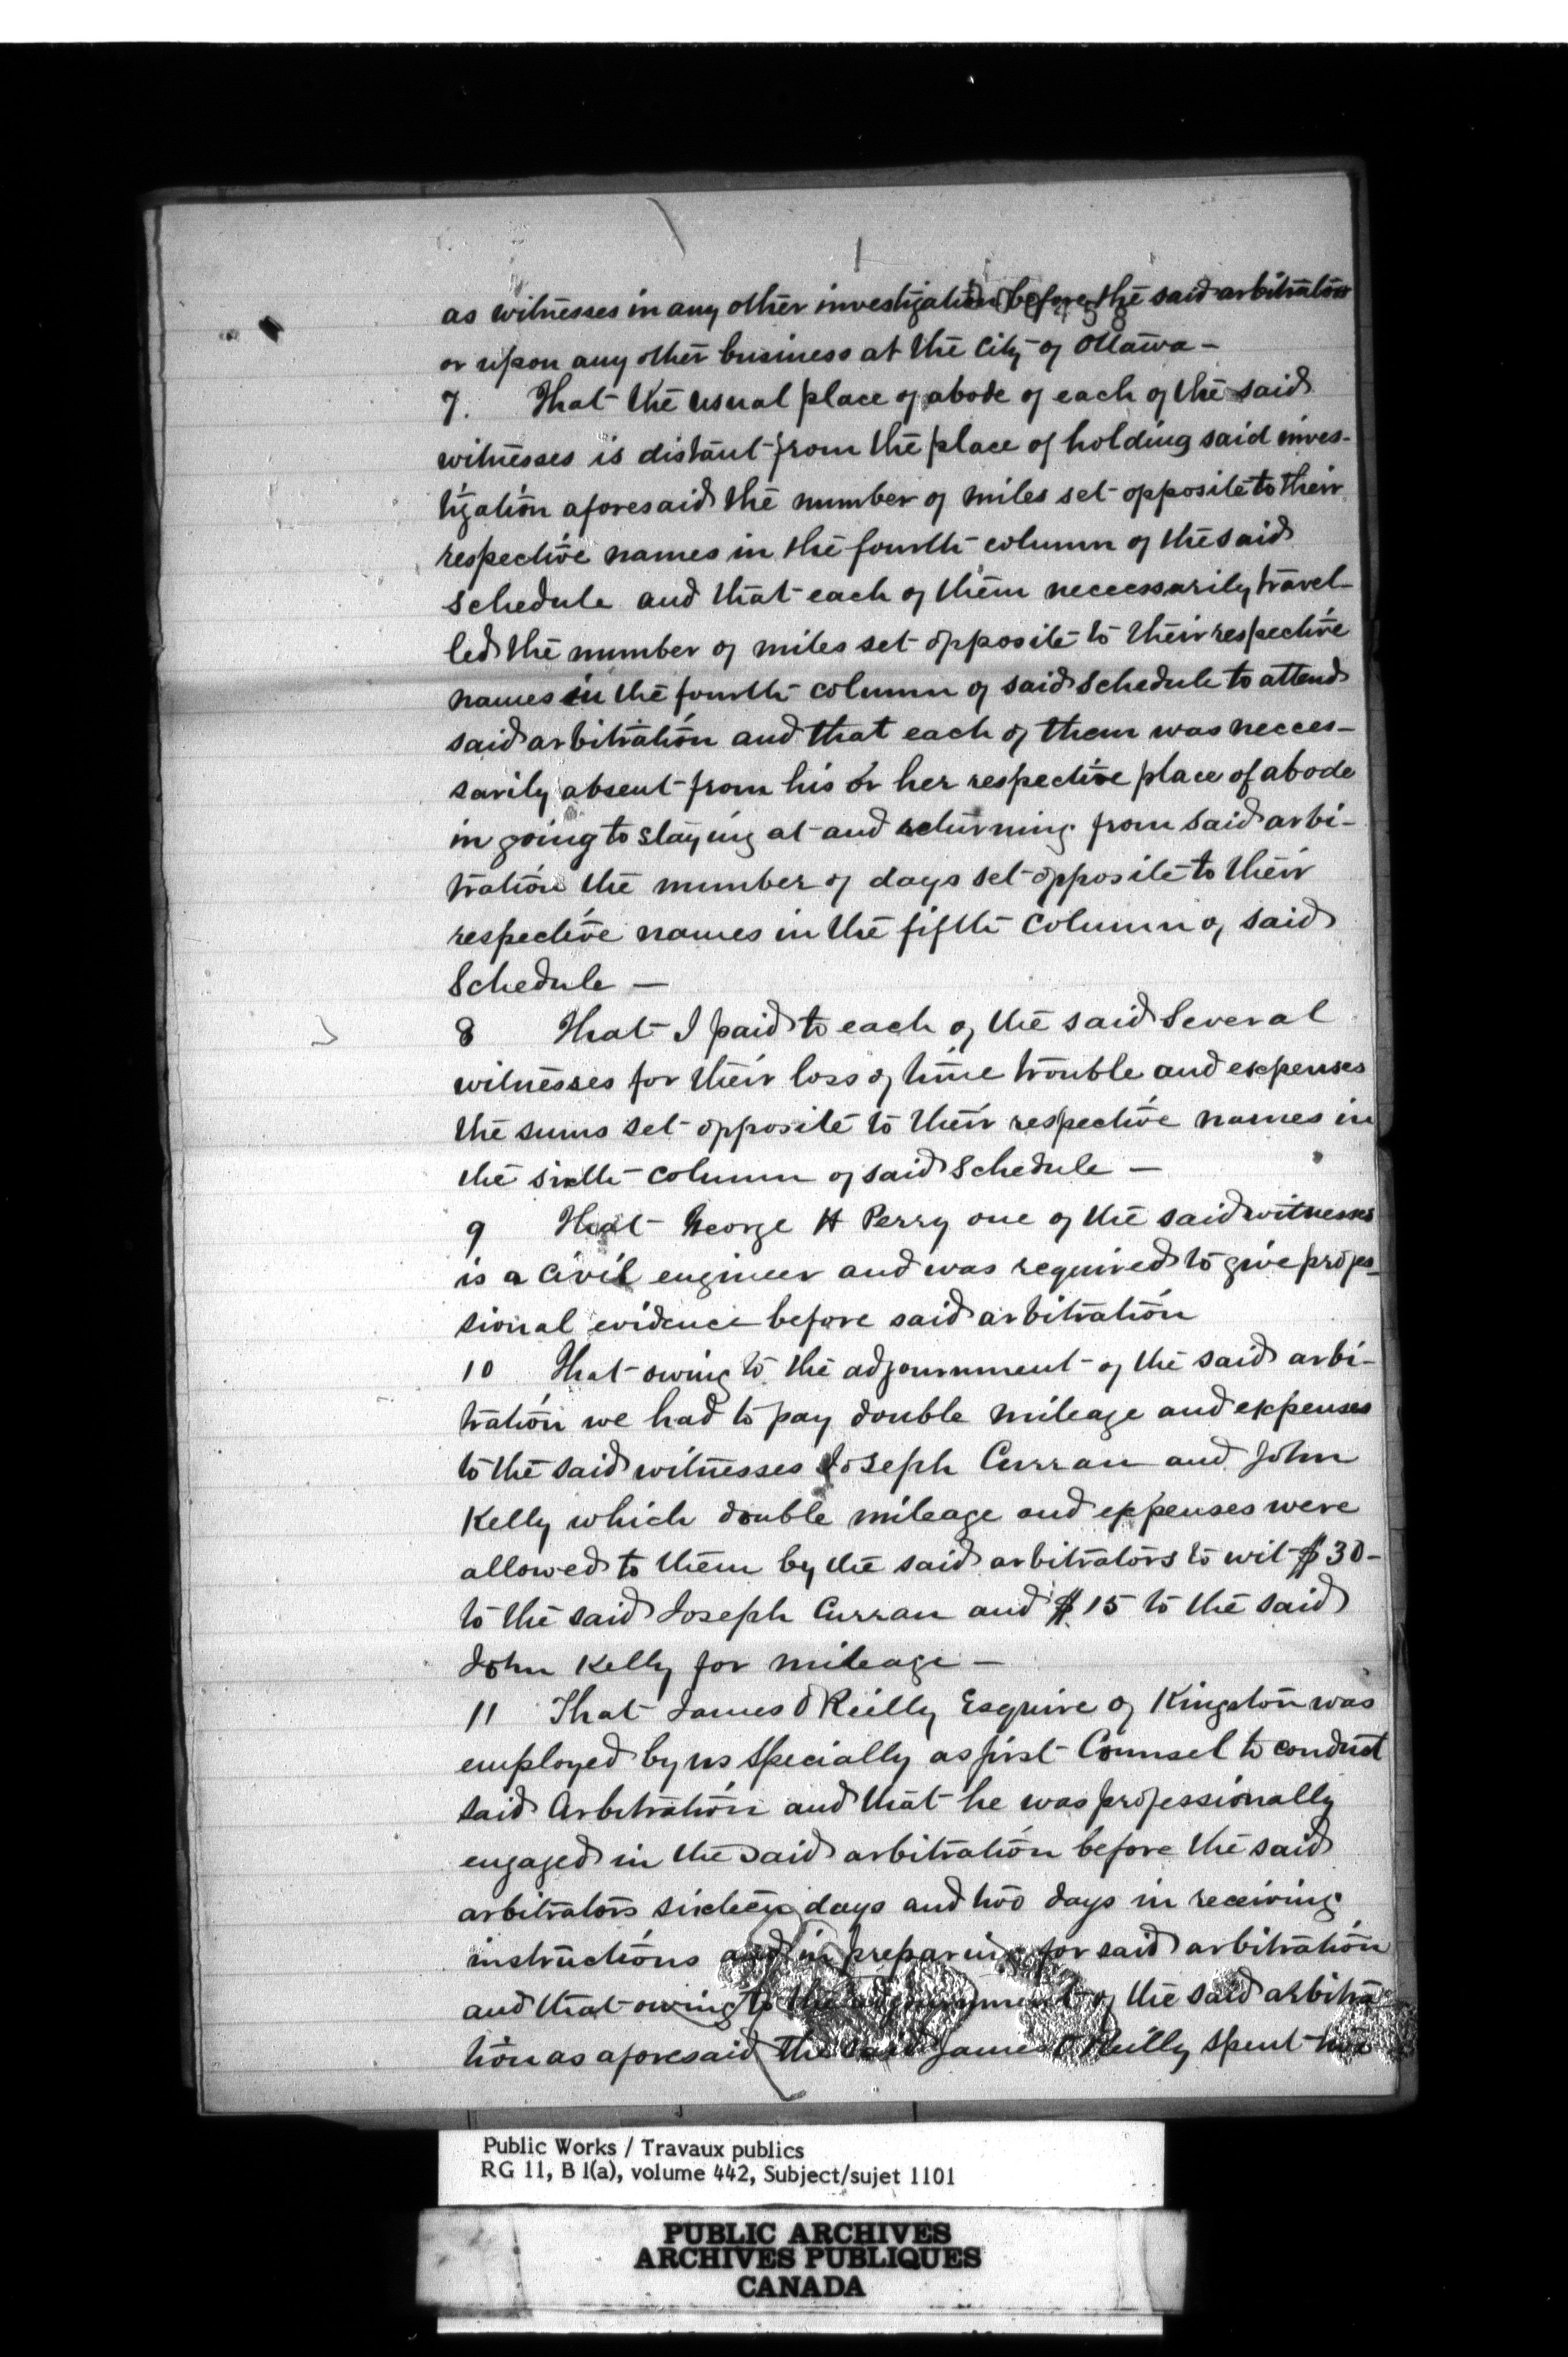 as witnesses in any other investigation before the said arbitrators
or upon any other business at the City of Ottawa -
7. That the usual place of abode of each of the said
witnesses is distant from the place of holding said inves-
tigation aforesaid the number of miles set opposite to their
respective names in the fourth column of the said
schedule and that each of them neccessarily travel-
led the number of miles set opposite to their respective
names in the fourth column of said schedule to attend
said arbitration and that each of them was necces-
sarily absent from his or her respective place of abode
in going to staying at and returning from said arbi-
tration the number of days set opposite to their
respective names in the fifth column of said
Schedule -
8 That I paid to each of the said several
witnesses for their loss of time trouble and expenses
the sums set opposite to their respective names in
the sixth column of said schedule -
9 That George H Perry one of the said witnesses
is a Civil engineer and was required to give profes-
sional evidence before said arbitration
10 That owing to the adjournment of the said arbi-
tration we had to pay double mileage and expenses
to the said witnesses Joseph Curran and John
Kelly which double mileage and expenses were
allowed to them by the said arbitrators to wit $30-
to the said Joseph Curran and $15 to the said
John Kelly for mileage -
11 That James O Reilly Esquire of Kingston was
employed by us specially as first Counsel to conduct
said Arbitration and that he was professionally
engaged in the said arbitration before the said
arbitrators sixteen days and two days in receiving
instructions and in preparing for said arbitration
and that owing to the adjournment of the said arbitra
tion as aforesaid the said James O Reilly spent two
Public Works / Travaux publics
RG 11, B 1(a), volume 442, Subject/sujet 1101
PUBLIC ARCHIVES
ARCHIVES PUBLIQUES
CANADA